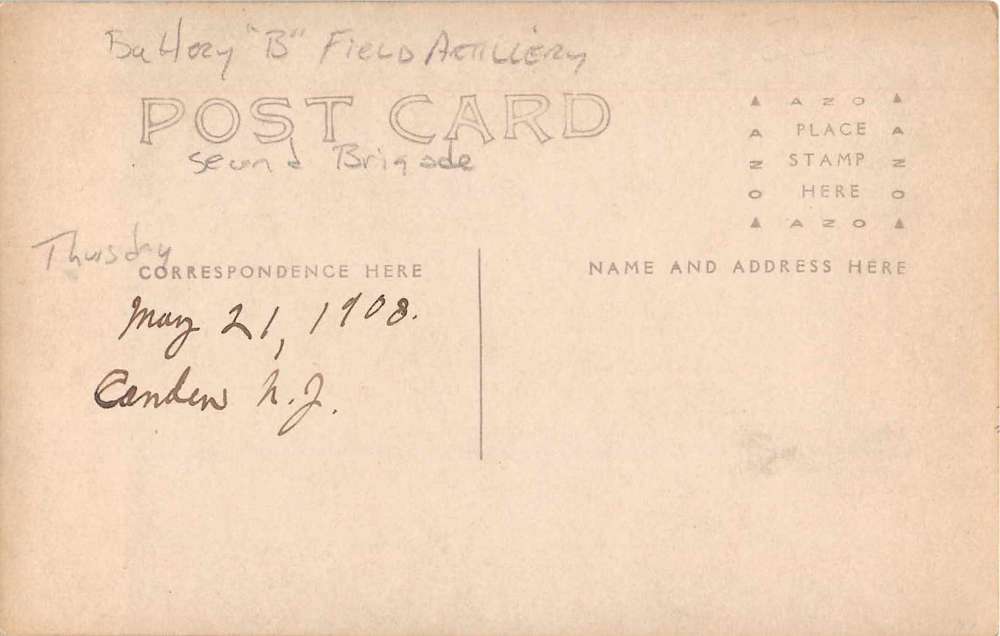 Battery "B" Field Artillery
POST CARD
Second Brigade
AZO
PLACE
STAMP
HERE
AZO
AZO
AZO
Thursday
CORRESPONDENCE HERE
NAME AND ADDRESS HERE
May 21, 1908.
Camden N.J.